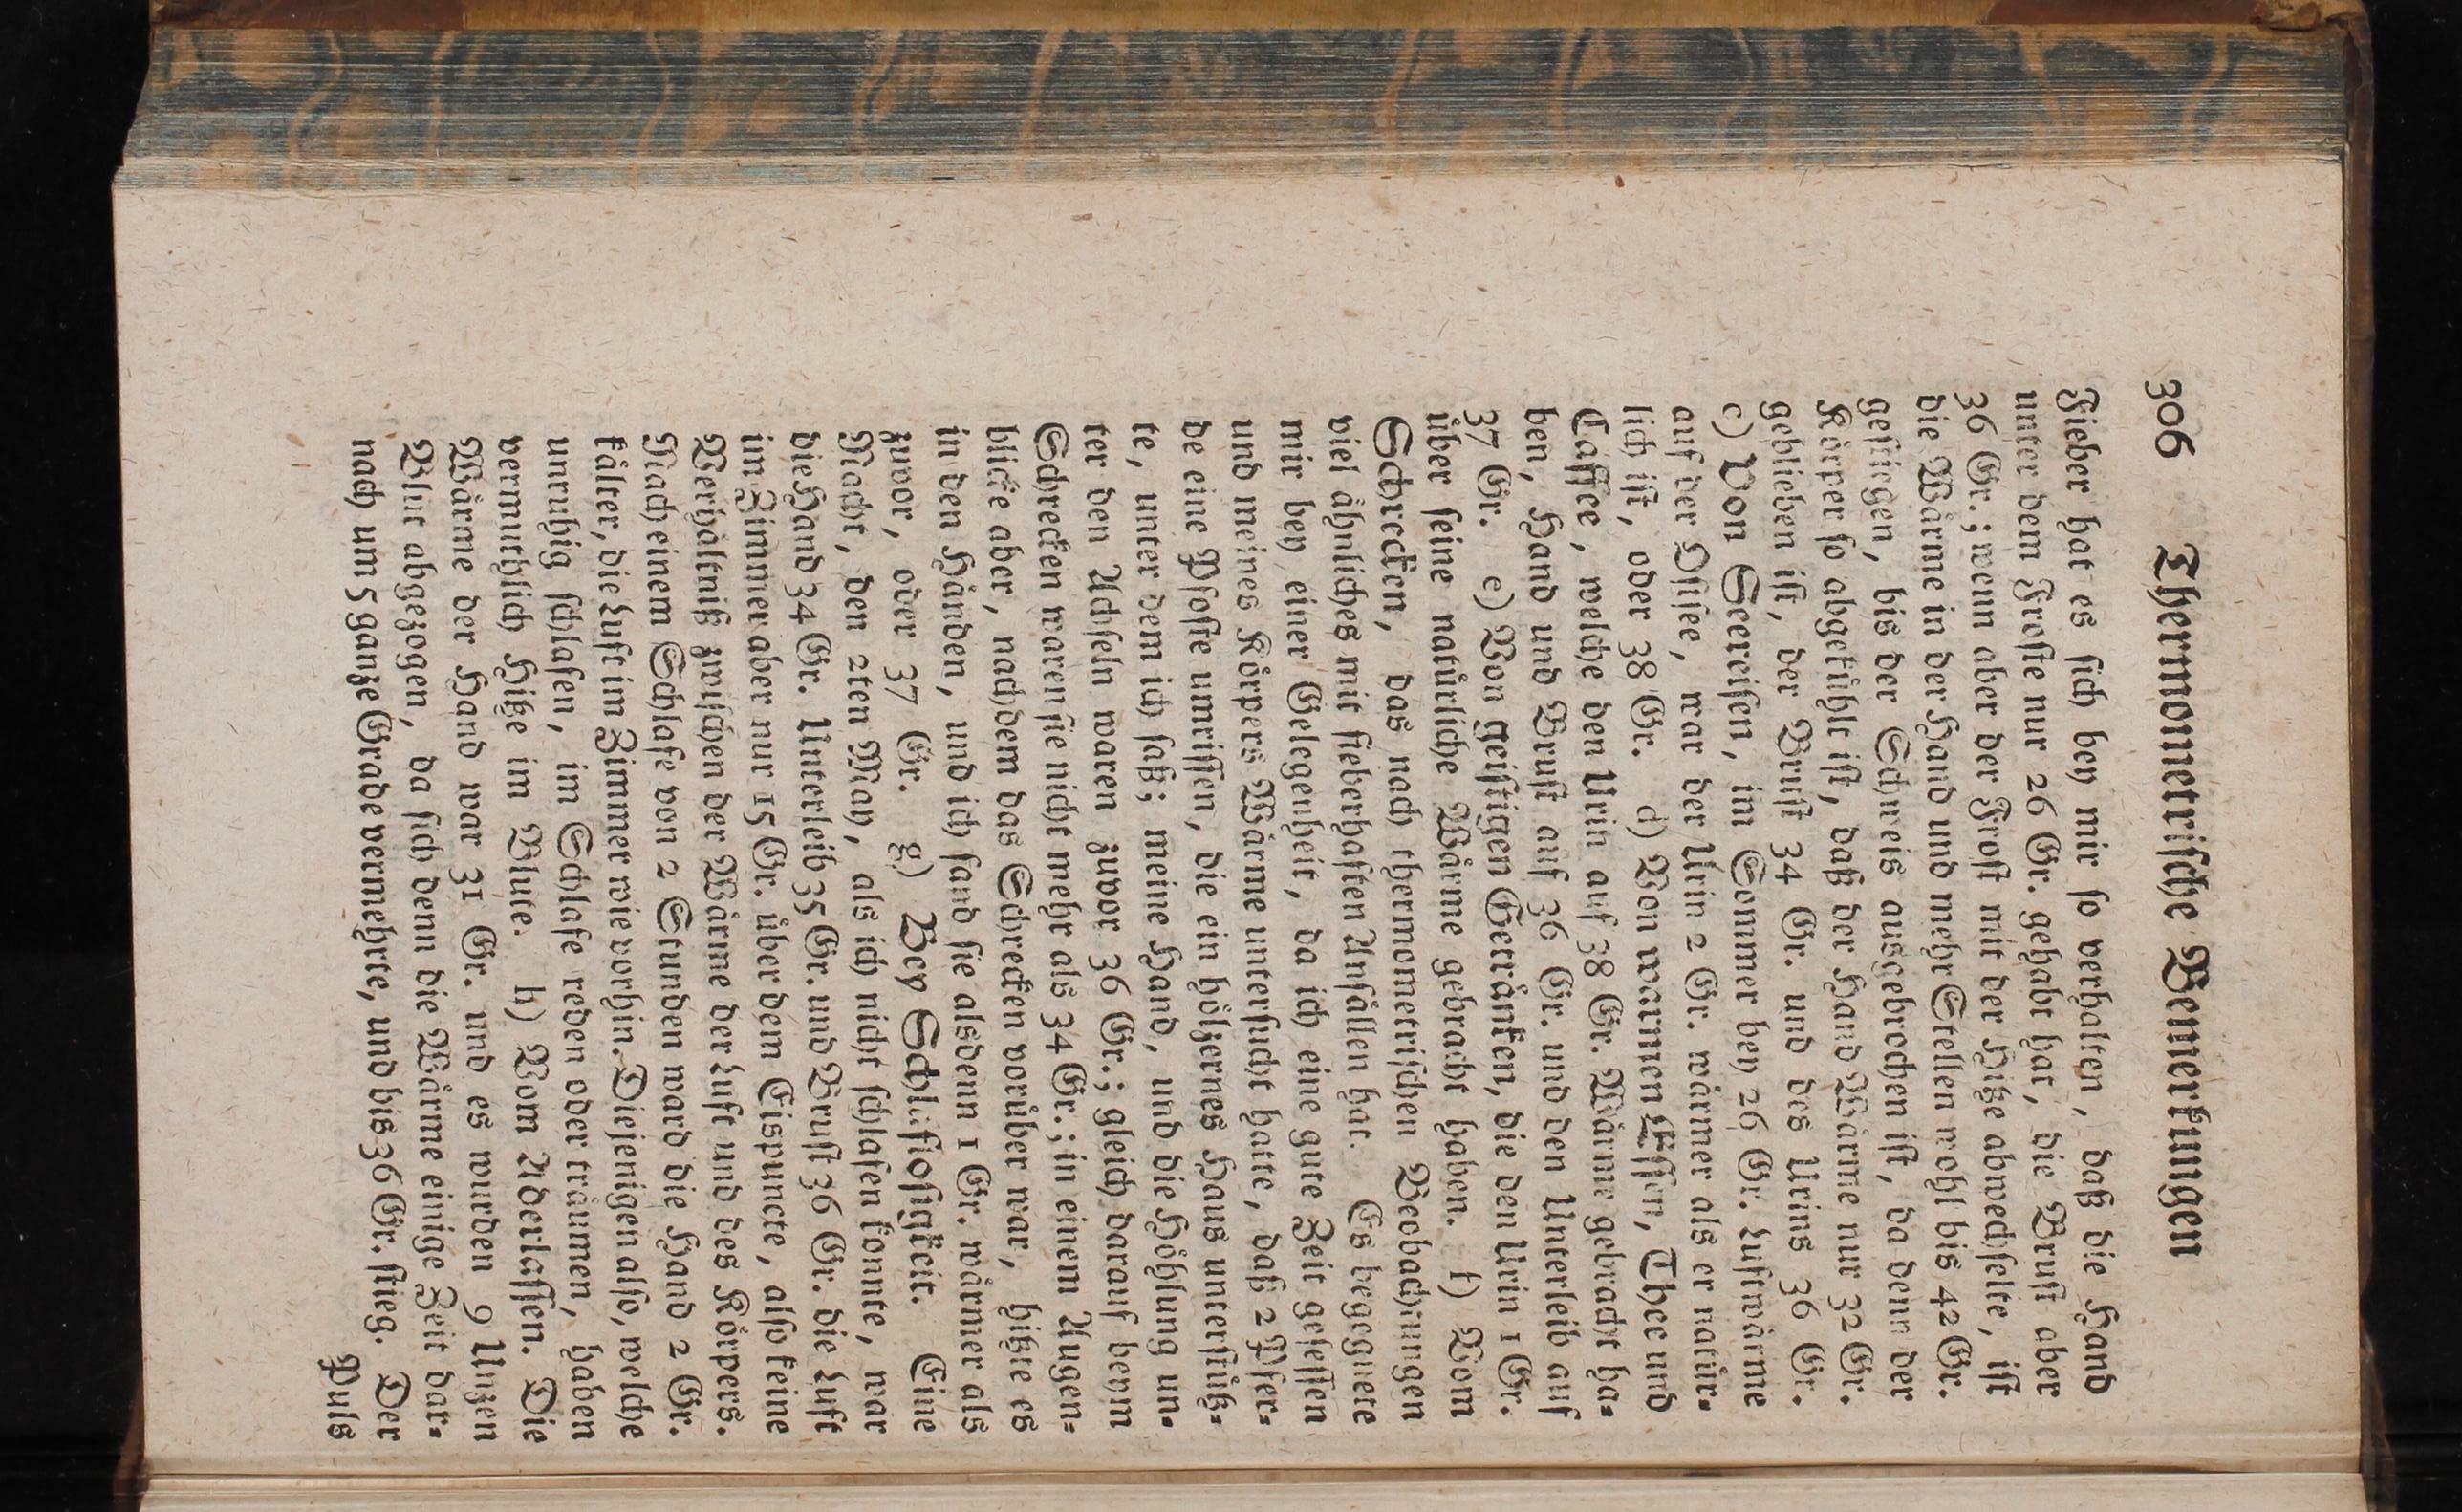 306 Thermometrische Bemerkungen
Fieber hat es sich bey mir so verhalten, daß die Hand
unter dem Froste nur 26 Gr. gehabt hat, die Brust aber
36 Gr.; wenn aber der Frost mit der Hitze abwechselte, ist
die Wärme in der Hand und mehr Stellen wohl bis 42 Gr.
gestiegen, bis der Schweis ausgebrochen ist, da denn der
Körper so abgekühlt ist, daß der Hand Wärme nur 32 Gr.
geblieben ist, der Brust 34 Gr. und des Urins 36 Gr.
c) Von Seereisen, im Sommer bey 26 Gr. Luftwärme
auf der Ostsee, war der Urin 2 Gr. wärmer als er natür-
lich ist, oder 38 Gr. d) Von warmen Essen, Thee und
Caffee, welche den Urin auf 38 Gr. Wärme gebracht ha-
ben, Hand und Brust auf 36 Gr. und den Unterleib auf
37 Gr. e) Von geistigen Getränken, die den Urin 1 Gr.
über seine natürliche Wärme gebracht haben. f) Vom
Schrecken, das nach thermometrischen Beobachtungen
viel ähnliches mit fieberhaften Anfällen hat. Es begegnete
mir bey einer Gelegenheit, da ich eine gute Zeit gesessen
und meines Körpers Wärme untersucht hatte, daß 2 Pfer-
de eine Pfoste umrissen, die ein hölzernes Haus unterstüß-
te, unter dem ich saß; meine Hand, und die Höhlung un-
ter den Achseln waren zuvor 36 Gr.; gleich darauf beym
Schrecken waren sie nicht mehr als 34 Gr.; in einem Augen-
blicke aber, nachdem das Schrecken vorüber war, hitzte es
in den Händen, und ich fand sie alsdenn 1 Gr. wärmer als
zuvor, oder 37 Gr. g) Bey Schlaflosigkeit. Eine
Nacht, den 2ten May, als ich nicht schlafen konnte, war
die Hand 34 Gr. Unterleib 35 Gr. und Brust 36 Gr. die Luft
im Zimmer aber nur 15 Gr. über dem Eispuncte, also keine
Verhältniß zwischen der Wärme der Luft und des Körpers.
Nach einem Schlafe von 2 Stunden ward die Hand 2 Gr.
kälter, die Luft im Zimmer wie vorhin. Diejenigen also, welche
unruhig schlafen, im Schlafe reden oder träumen, haben
vermuthlich Hitze im Blute. h) Vom Aderlassen. Die
Wärme der Hand war 31 Gr. und es wurden 9 Unzen
Blut abgezogen, da sich denn die Wärme einige Zeit dar-
nach um 5 ganze Grade vermehrte, und bis 36 Gr. stieg. Der
Puls